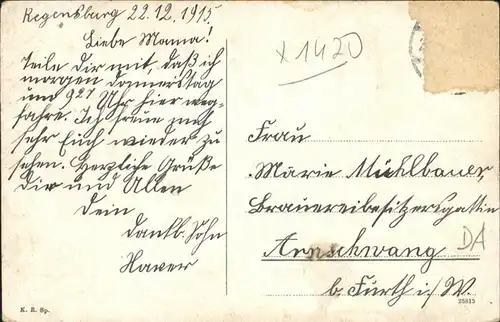 Regensburg 22.12.1915
Liebe Mama!
Teile Dir mit, daß ich
morgen Donnerstag
um 9 27 Uhr hier weg-
fahre. Ich freue mich
sehr Euch wieder zu
sehen. Herzliche Grüße
Dir und Allen
Dein
dankb. Sohn
Xaver
K. R. Sp.
x 1420
Frau
Marie Mühlbauer,
Brauereibesitzersgattin
Arnschwang
b. Furth i/W.
DA
25815